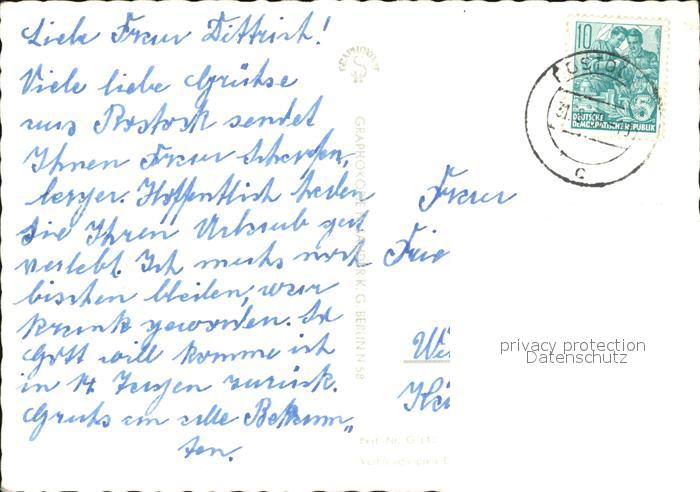 Liebe Frau Dittrich!
Viele liebe Grüsse
aus Rostock sendet
Ihnen Frau Scharfen-
berger. Hoffentlich haben
Sie Ihren Urlaub gut
verlebt. Ich muss noch
bischen bleiben, war
krank geworden. So
Gott will komme ich
in 14 Tagen zurück.
Gruss an alle Bekann„
ten.
GRAPHOKOPIE
GRAPHOKOPIE H. SANDER K. G. BERLIN N 58
10
5
DEUTSCHE
DEMOKRATISCHE REPUBLIK
ROSTOCK
C
Frau
Frie
privacy protection
Datenschutz